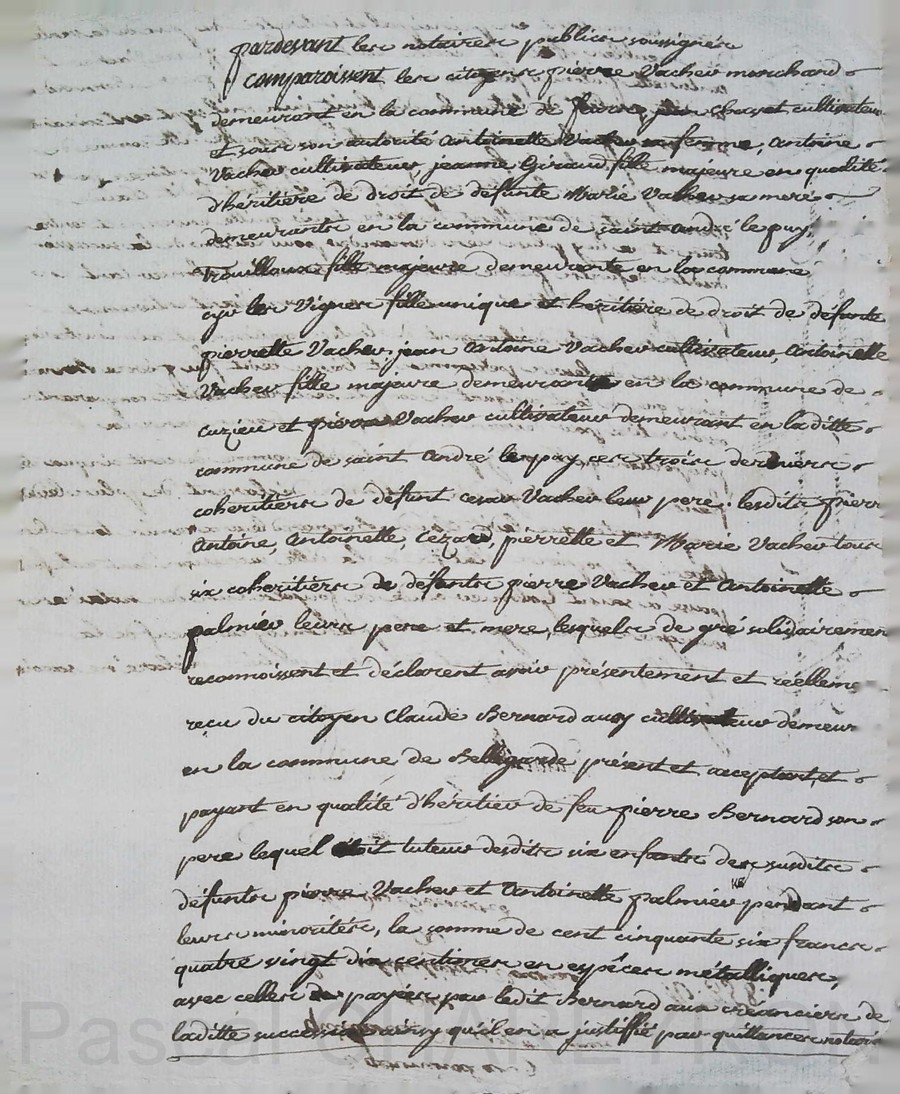 pardevant les notaires publics soussignés
comparoissent les citoyens pierre Vacher marchand
demeurant en la commune de jean Chazet cultivateur
et sous son autorité Antoinette Vacher sa femme, Antoine
Vacher cultivateur, jeanne Giraud fille majeure en qualité
d'heritière de droit de defunte Marie Vacher sa mere
demeurants en la commune de saint André le puy,
Trouilloux fille majeure demeurente en la commune
les Vignes fille unique et heritière de droit de défunte
pierrette Vacher, jean Antoine Vacher cultivateur, Antoinette
Vacher fille majeure demeurants en la commune de
cuzieu et pierre Vacher cultivateur demeurant en laditte
commune de saint André le puy ces trois derniers
coheritiers de défunt cesar Vacher leur pere. lesdits pierre
Antoine, Antoinette, Cezard, pierrette et Marie Vacher tous
six coheritiers de défunts pierre Vacher et Antoinette
palmier leurs pere et mere, lesquels de gré solidairemen
reconnoissent et déclarent avoir présentement et réelleme
reçu du citoyen Claude Bernard aussy cultivateur demeur
en la commune de Bellegarde présent et acceptant, et
payant en qualité d'héritier de feu pierre Bernard son
pere lequel étoit tuteur desdits six enfants des susdits
défunts pierre Vacher et Antoinette palmier pendant
leurs minorités, la somme de cent cinquante six francs
quatre vingt dix centimes en espéces métalliques,
avec celles payées par ledit Bernard aux créanciers de
laditte succession ainsy qu'il en a justiffié par quittances notari
Pascal CHAMBON